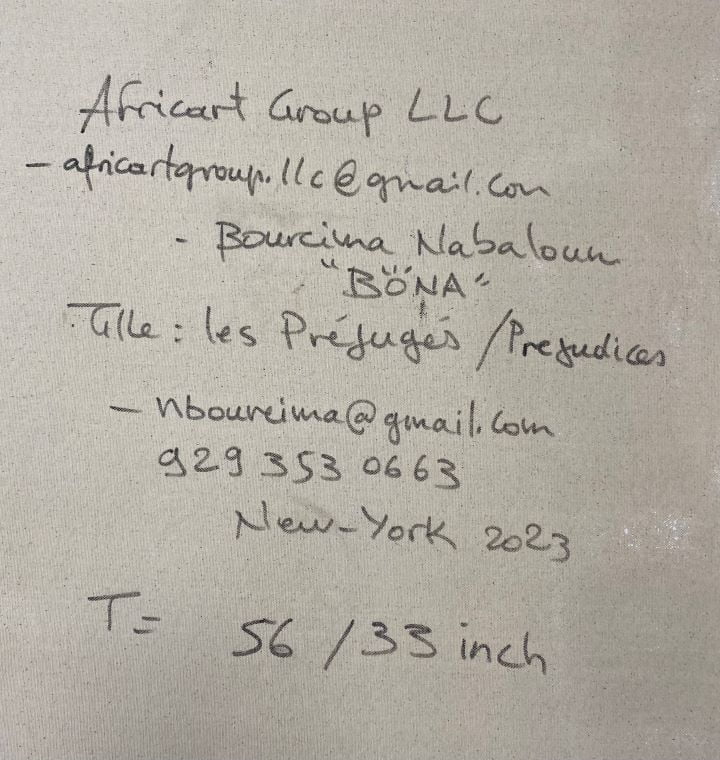 Africart Group LLC
- africartgroup.llc@gmail.com
- Boureima Nabaloum
"BÖNA"
Title : les Préjugés / Prejudices
- nboureima@gmail.com
929 353 0663
New-York 2023
T= 56 / 33 inch